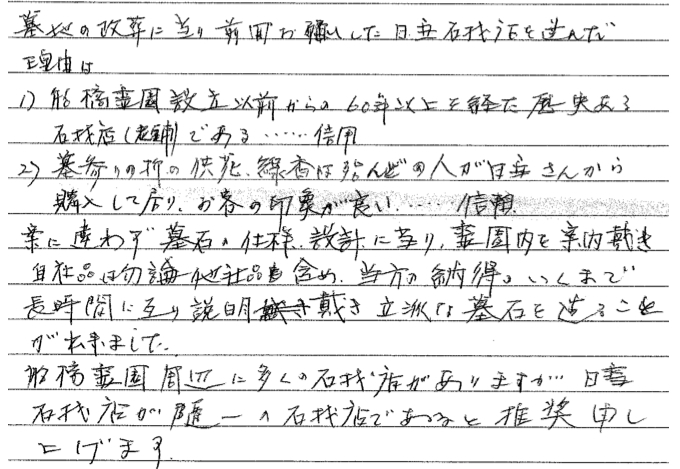 墓地の改葬に当り前回お願いした日吉石材店を選んだ
理由は
1) 船橋霊園設立以前からの60年以上を経た歴史ある
石材店(老舗)である……信用
2) 墓参りの折の供花、線香は殆んどの人が日吉さんから
購入して居り、お客の印象が良い……信頼
案に違わず墓石の仕様、設計に当り、霊園内を案内戴き
自社品は勿論他社品も含め、当方の納得のいくまで
長時間に亙り説明戴き立派な墓石を造ること
が出来ました。
船橋霊園周辺に多くの石材店がありますが日吉
石材店が随一の石材店であると推奨申し
上げます.